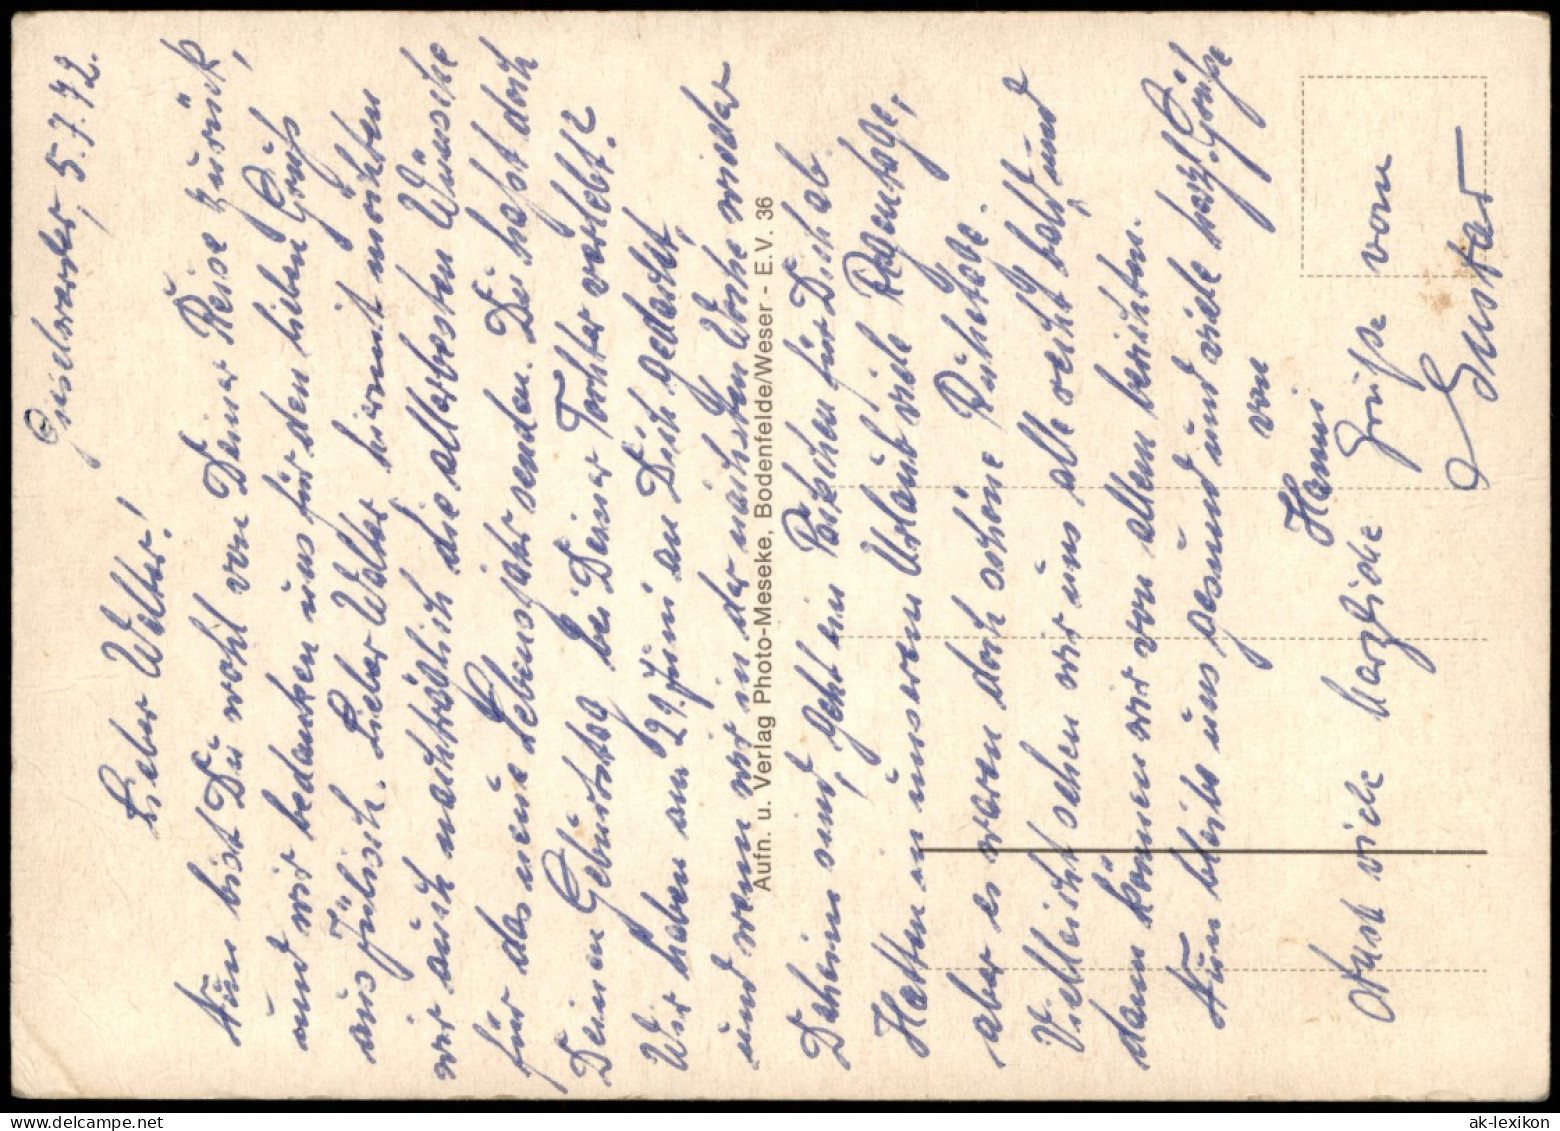 Gieselwerder, 5.7.72.
Lieber Walter!
Nun bist Du wohl von Deiner Reise zurück,
und wir bedanken uns für den lieben Gruß
aus Jülich. Lieber Walter hiermit möchten
wir auch nachträglich die allerbesten Wünsche
für das neue Lebensjahr senden. Du hast doch
Deinen Geburtstag bei Deiner Tochter verlebt?
Wir haben am 29. Juni an Dich gedacht,
und wenn wir in der nächsten Woche wieder
Daheim sind, geht ein Päckchen für Dich ab.
Hatten in unserem Urlaub viele Regentage,
aber es waren doch schöne Ruhetage.
Vielleicht sehen wir uns alle recht bald, und
dann können wir von allem berichten.
Nun bleibe uns gesund und viele herzl. Grüße
von
Hanni
Auch viele herzliche Grüße vom
Gustav
Aufn. u. Verlag Photo-Meseke, Bodenfelde/Weser - E.V. 36
ak-lexikon